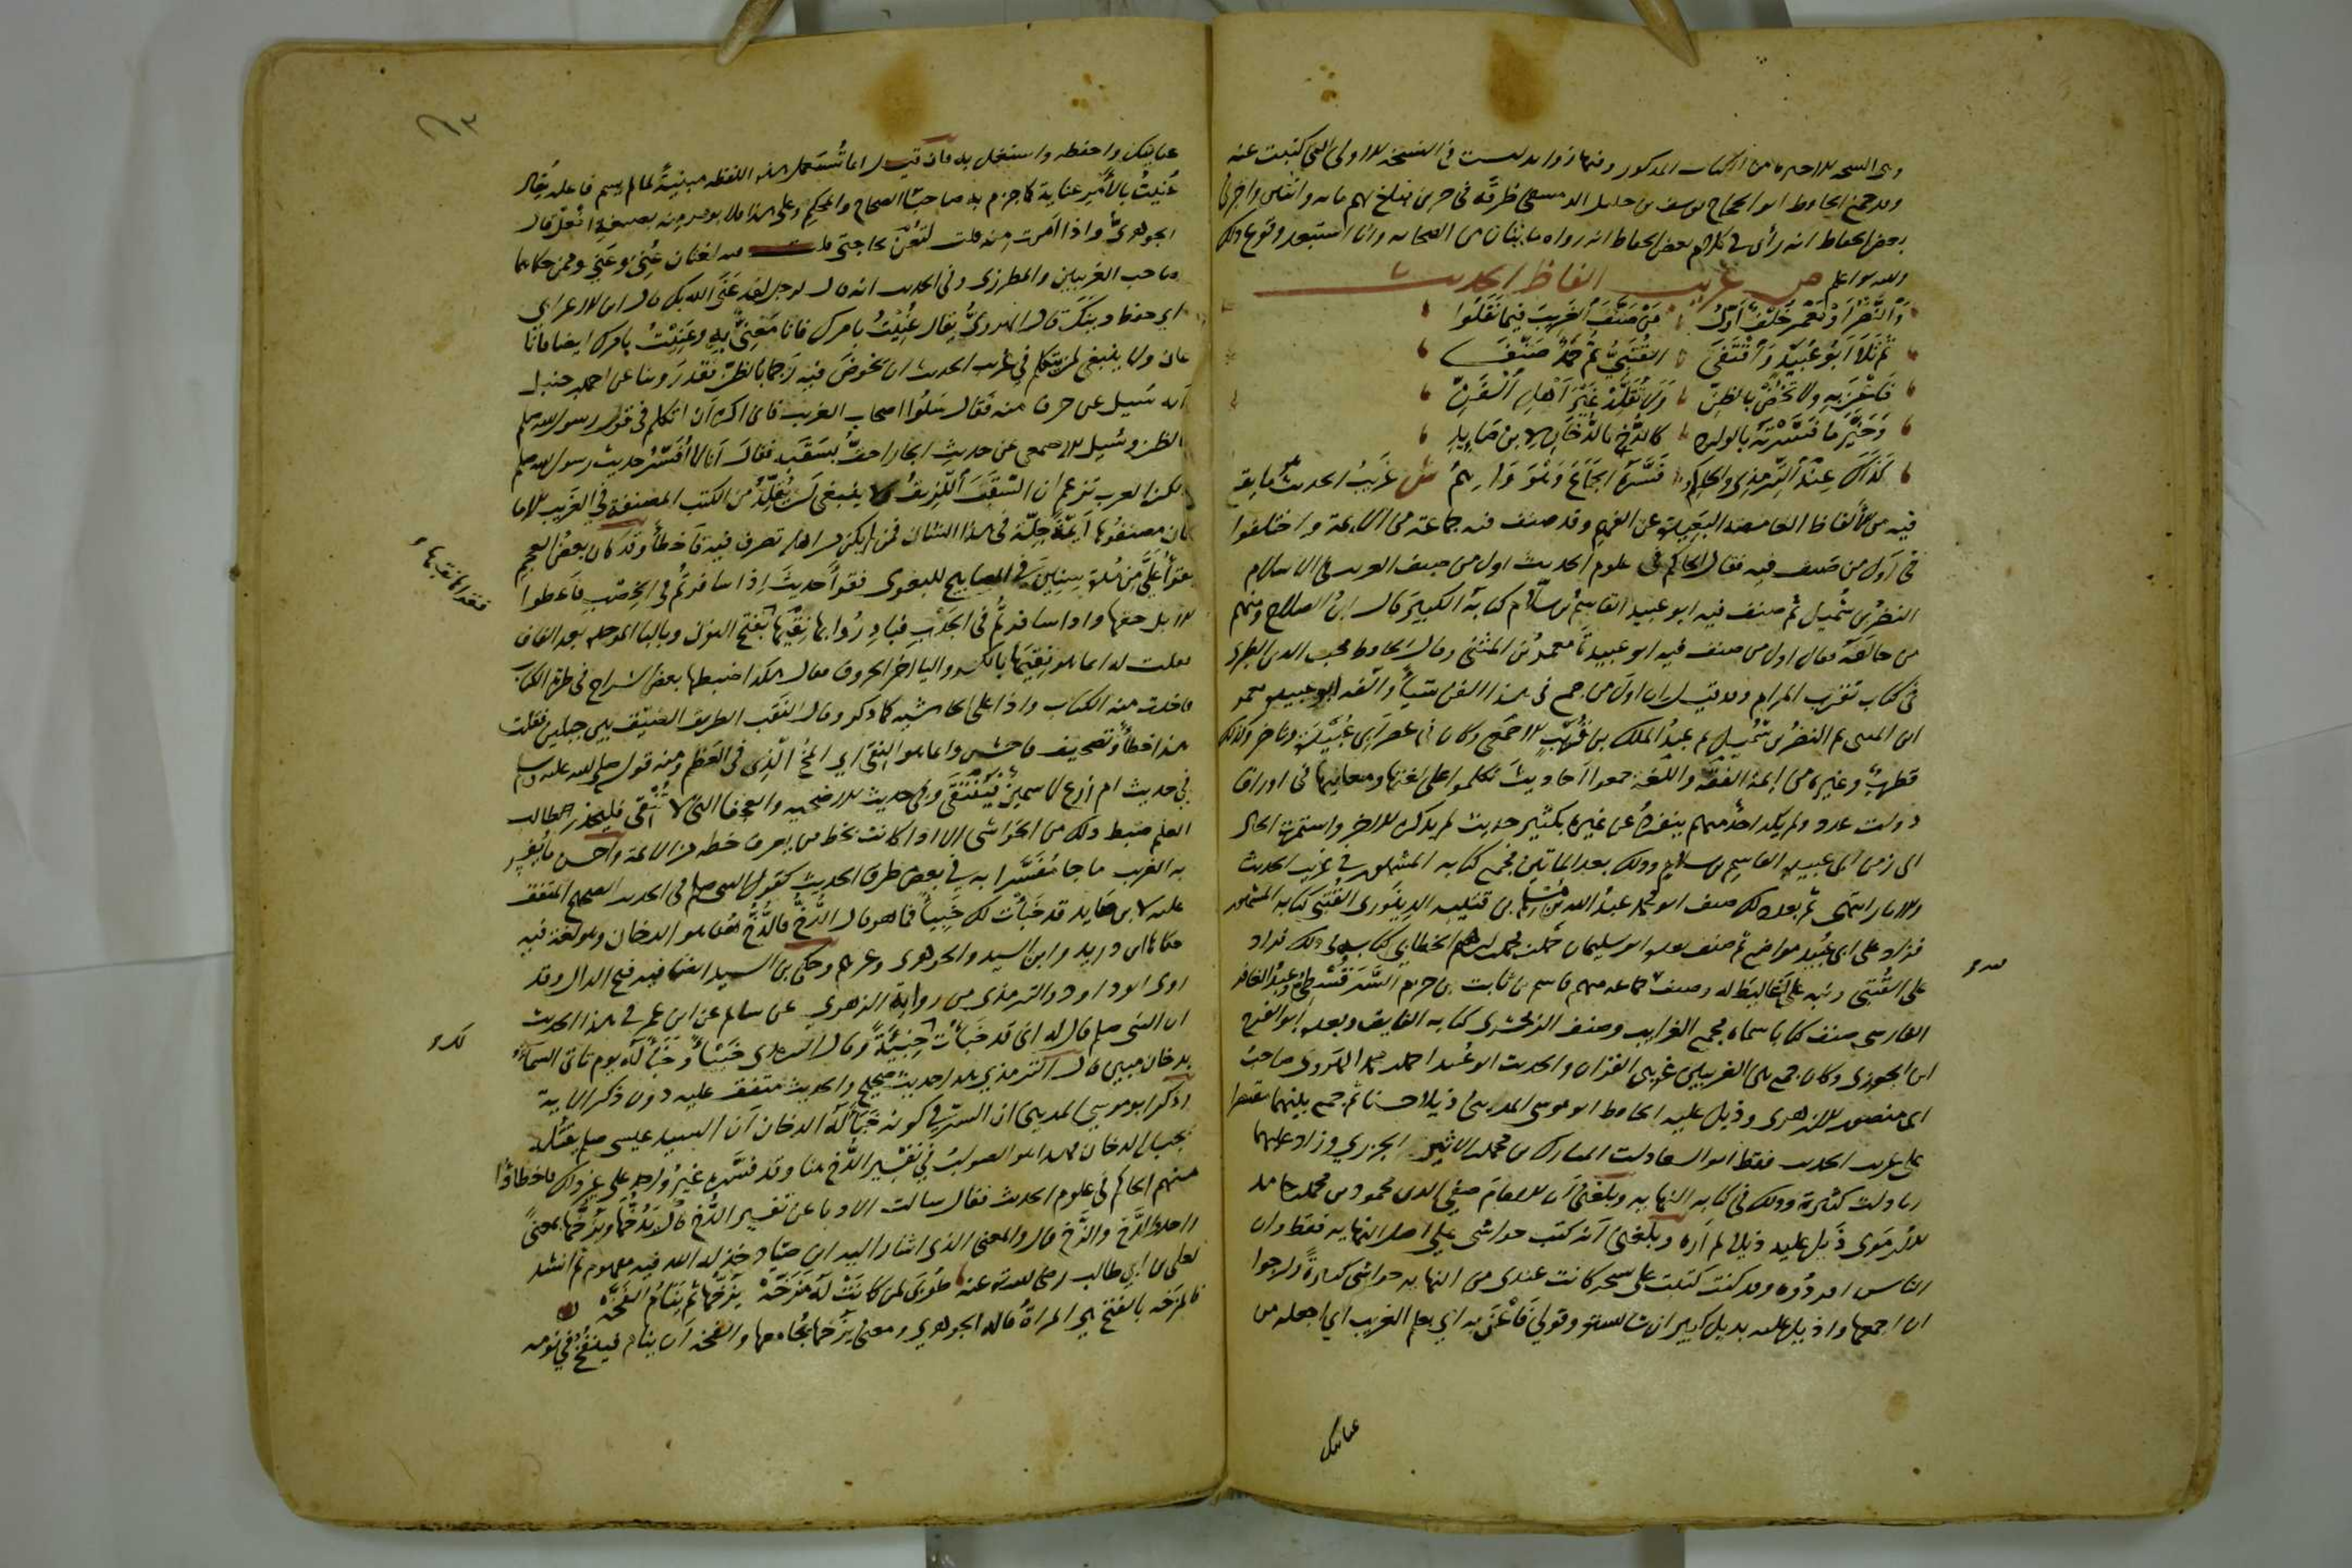 وهى النسخه الاخيره من الكتاب المذكور وفيها زوايد ليست في النسخه الاولى التي كتبت عنه
وقد جمع الحافظ ابو الحجاج يوسف بن خليل الدمشقي طرقه في جزين فبلغ بهم مايه واثنين واخبرني
بعض الحفاظ انه رأى في كلام بعض الحفاظ انه رواه مايتان من الصحابه وانا استبعد وقوع ذلك
والله اعلم ص غريب الفاظ الحديث
وَالنَّضْرُ اَوْ مَعْمَرُ خُلْفٌ اَوَّلُ مَنْ صَنَّفَ الغَرِيبَ فيما نَقَلُوا
ثُمَّ تَلَا اَبُو عُبَيْدٍ وَاقْتَفَى القُتَبِيُّ ثُمَّ حَمْدٌ صَنَّفَا
فَاعْنَ بِهِ ولا تَخُضْ بالظنِّ وَلَا تُقَلِّدْ غَيْرَ اَهْلِ الْفَنِّ
وَخَيْرُ ما فَسَّرْتَهُ بالوارد كالدُّخِّ بالدُّخَانِ لابنِ صَايِدِ
كَذَاكَ عِنْدَ التِّرمِذِي والحاكِمُ فَسَّرَهُ الجِمَاعَ وَهْوَ وَاهِمُ ش غَرِيبُ الحديث ما يقع
فيه من الألفاظ الغامضة البَعِيدة عن الفهم وقد صنف فيه جماعة من الائمة واختلفوا
في اوّل من صَنف فيه فقال الحاكم في علوم الحديث اول من صنف الغريب في الاسلام
النضر بن شُميل ثم صنف فيه ابو عبيد القاسِم بن سلام كتابه الكبير قال ابن الصلاح ومنهم
من خالفه فقال اول من صنف فيه ابو عبيدة معمر بن المثنى وقال الحافظ محب الدين الطبري
في كتاب تقريب المرام وقد قيل ان اول من جمع في هذا الفن شيأً والّفه ابو عبيدة معمر
ابن المثنى ثم النضر بن شُميل ثم عبد الملك بن قُرَيبٍ الاصمعي وكان في عصر ابي عُبَيدَة وتاخر وكذلك
قطربٌ وغيره من ائمة الفقه واللغة جمعوا احاديث تكلموا على لغتها ومعانيها في اوراق
ذوات عدد ولم يكد احدٌ منهم ينفردُ عن غيره بكثير حديث لم يذكره الاخر واستمرت الحال
الى زمن ابي عبيد القاسم بن سلام وذلك بعد المائتين فجمع كتابه المشهور في غريب الحديث
والاثار انتهى ثم بعد ذلك صنف ابو محمد عبد الله بن مسلم بن قتيبه الدِينَوَرى القُتَبي كتابه المشهور
فزاد على ابي عُبَيد مواضع ثم صنف بعده ابو سليمان حَمْد بن محمد بن ابرهيم الخطابي كتابه في ذلك فزاد
على القُتَبي ونبه على اَغاليطَ له وصنف جماعه منهم قاسم بن ثابت بن حزم السَّرَقُسْطي وعبد الغافر
الفارسي صنف كتابا سماه مجمع الغرايب وصنف الزمخشرى كتابه الفايق وبعده ابو الفرج
ابن الجوزى وكان جمع بين الغريبين غريبى القران والحديث ابو عُبيد احمد بن محمد الهَرَوى صاحب
ابي منصور الازهرى وذيل عليه الحافظ ابو موسى المديني ذيلا حسنا ثم جمع بينهما مقتصرا
على غريب الحديث فقط ابو السعادات المبارك بن محمد بن الاثير الجزري وزاد عليهما
زيادات كثيرة وذلك في كتابه النهايه وبلغني أن الامام صفي الدين محمود بن محمد بن حامد
الارموى ذَيل عليه ذيلا لم اَره وبلغني اَنّه كتب حواشي على اصل النهايه فقط وان
الناس افردُوه وقد كنت كتبت على نسخه كانت عندى من النهايه حواشى كثيرةً وارجوا
ان اجمعها واذيل عليه بذيل كبير ان شا الله تعالى وقولي فَاعْنَ به اي بعلم الغريب اي اجعله من
عنايتك
عنايتك واحفظه واشتغل به فان قيل انما تُستعمل هذه اللفظه مبنيةً لما لم يسم فاعله يُقال
عُنِيتُ بالأمر عناية كما جزم به صاحبا الصحاح والمحكم وعلى هذا فلا يومر منه بصيغة افعَل قال
الجوهريُّ واذا اَمرت منه قلت لتُعْنَ بحاجتي قلت فيه لغتان عُنِيَ وعَنِيَ وممن حكاهما
صاحب الغريبين والمطرزى وفي الحديث انه قال لرجل لقد عَنَي الله بك قال ابن الاعرابي
اي حفظ دينَكَ قال الهرويُّ يقال عُنِيْتُ بامرك فانا مَعْنِيٌّ بِهِ وعَنِيْتُ بامرك ايضا فانا
عان ولا ينبغي لمن يتكلم في غريب الحديث ان يخوضَ فيه رَجمًا بالظن فقد روينا عن احمد بن حنبل
اَنه سُئيل عن حرف منه فقال سَلُوا اصحاب الغريب فانى اكره اَن اتكلم في قول رسول الله صلعم
بالظن وسُئيل الاصمعي عن حديث الجار احقُّ بسَقَبِه فقال اَنا لا اُفسِّرُ حديث رسول الله صلعم
ولكن العرب تزعم ان السَّقَبَ اللّزيقُ ولا ينبغي ان يُقَلِّدَ من الكتب المصنفة في الغريب الا ما
كان مصنفُوها اَيمّةً جِلّة في هذا الشان فمن لم يكن من اهله تصرف فيه فَاَخطأ وقد كان بعض العجم
يقرأ عَلَّى مِن مُدة سِنينَ في المصابيح للبغوى فقرأ حديثَ اِذا سافرتُم في الخِصْبِ فاَعطوا
الابل حقها واذا سافرتُم في الجَدْبِ فبادِرُوا بها نِقْيَها بفتح النون وبالبا الموحده بعد القاف
فقلت له انما هو نِقيَها بالكسر واليا اخر الحروف فقال هكذا ضبطها بعض الشراح في طرة الكتاب
فاخذت منه الكتاب واذا على الحاشيه كما ذكر وقال النَقْبُ الطريق الضيّق بين جبلين فقلت
هذا خطأٌ وتصحيف فاحش وانما هو النِقْى اي المخُّ الّذِى في العَظْم ومنه قوله صلى الله عليه وسلم
في حديث ام زرع لا سمين فيُنتَقَى وفي حديث الاضحيه والعجفا التي لا تُنْقى فليحذر طالب
العلم ضبط ذلك من الحَواشي الا اذا كانت بخط من يعرف خطه من الائمة واحسن ما يُفسر
به الغريب ما جا مُفَسَّرا به في بعض طرق الحديث كقول النبي صلعم في الحديث الصحيح المتفق
عليه لابن صَايد قد خَبأتُ لك خَبِيأً فما هو قال الدُّخُّ فالدُّخُّ هُنا هو الدخان وهو لغة فيه
حكاها ابن دريد وابن السيد والجوهرى وغيرهم وحكى ابن السيد ايضا فيه فتح الدال وقد
روى ابو داود والترمذى من رواية الزهرى عن سالم عن ابن عمر في هذا الحديث
ان النبي صلعم قال له انى قد خَبأتُ لك خَبِيئَةً وقال الترمذى خَبِيأً وَخَبأ لَهُ يوم تاتى السماءُ
بدخان مبين قال الترمذي هذا حديثٌ صحيح والحديث متفق عليه دون ذكر الاية
وذكر ابو موسى المديني ان السرّ في كونه خَبَأ لَهُ الدخان اَن السيد عيسى صلعم يقتُله
بجبل الدخان فهذا هو الصوابُ في تفسير الدُّخ هنا وقد فسّره غيرُ واحد على غير ذلك فاخطأوُا
منهم الحاكم في علوم الحديث فقال سالت الادبا عن تفسير الدُّخ قال يَدُخّها ويَزُخّها بمعنىً
واحد الدَّخ والزّخ قال والمعنى الذى اشار اليه ابن صيّاد خذله الله فيه مفهوم ثم انشد
لعلى بن ابي طالب رضي الله عنه طُوبَى لمن كانَتْ لَهُ مَزَخَّهْ يَزُخُّها ثُمّ يَنَامُ الفَخّه
فالمزخه بالفتح هي المراةُ قاله الجوهري ومعنى يزُخها يجُامعها والفخه اَن ينام فينفُخُ في نومه